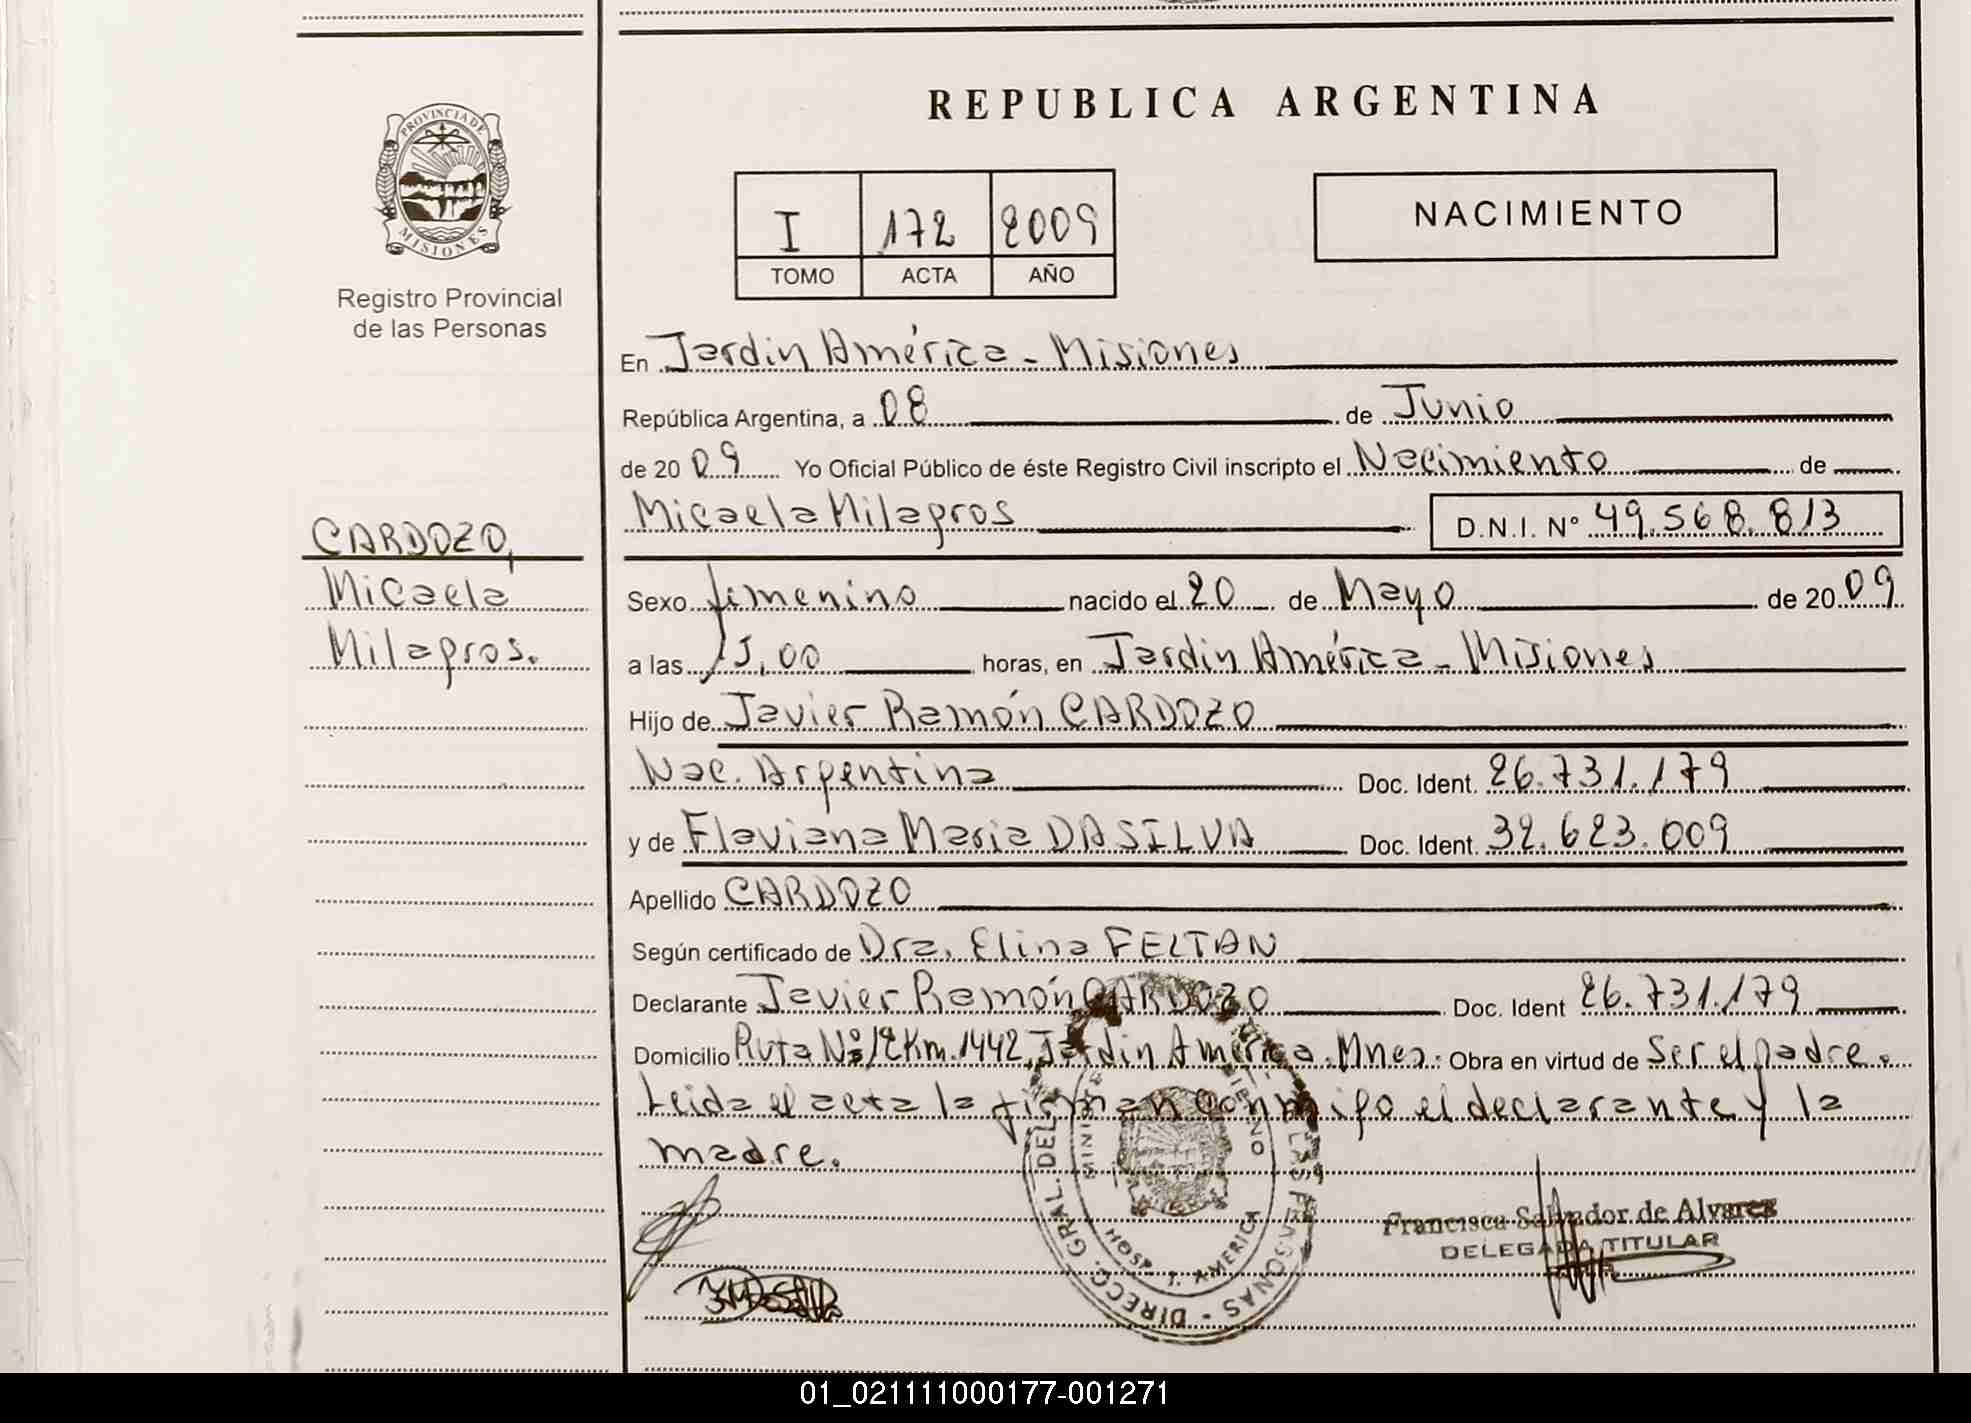 REPUBLICA ARGENTINA
PROVINCIA DE
MISIONES
Registro Provincial
de las Personas
I 172 2009
TOMO ACTA AÑO
NACIMIENTO
En Jardín América - Misiones
República Argentina, a 08 de Junio
de 2009 Yo Oficial Público de éste Registro Civil inscripto el Nacimiento de
Micaela Milagros D.N.I. N° 49.568.813
CARDOZO,
Micaela
Milagros.
Sexo femenino nacido el 20 de Mayo de 2009
a las 15,00 horas, en Jardín América - Misiones
Hijo de Javier Ramón CARDOZO
Nac. Argentina Doc. Ident. 26.731.179
y de Flaviana Maria DA SILVA Doc. Ident. 32.623.009
Apellido CARDOZO
Según certificado de Dra. Elina FELTAN
Declarante Javier Ramón CARDOZO Doc. Ident 26.731.179
Domicilio Ruta Nº 12 Km. 1442, Jardín América. Mnes. Obra en virtud de Ser el padre.
Leída el acta la firman conmigo el declarante y la
madre.
Francisca Salvador de Alvarez
DELEGADA TITULAR
DIRECC. GRAL. DEL LAS PERSONAS
HOSP. J. AMERICA
01_021111000177-001271